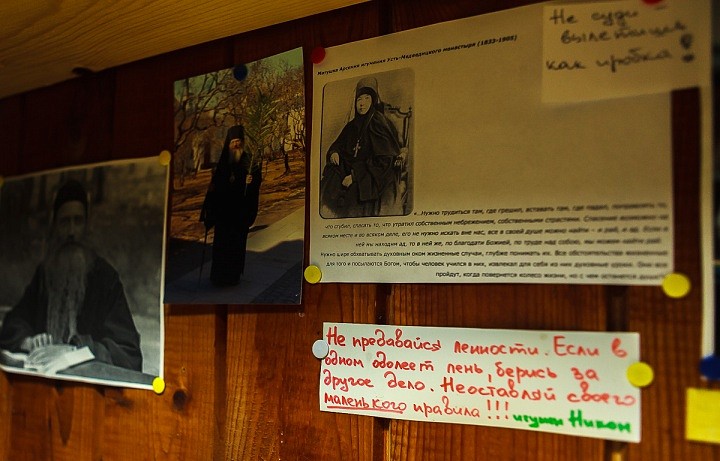 Не суди
вылетишь
как пробка!
Матушка Арсения игумения Усть-Медведицкого монастыря (1833-1905)
«...Нужно трудиться там, где грешил, вставать там, где падал, поправлять то,
что сгубил, спасать то, что утратил собственным небрежением, собственными страстями. Спасение возможно на
всяком месте и во всяком деле, его не нужно искать вне нас, все в своей душе можно найти – и рай, и ад. Если в
ней мы находим ад, то в ней же, по благодати Божией, по труде над собою, мы можем найти рай.
Нужно шире обхватывать духовным оком жизненные случаи, глубже понимать их. Все обстоятельства жизненные
для того и посылаются Богом, чтобы человек учился в них, извлекал для себя из них духовные уроки. Они все
пройдут, когда повернется колесо жизни, но с чем останется душа
Не предавайся ленности. Если в
одном одолеет лень, берись за
другое дело. Неоставляй своего
маленького правила!!! игумен Никон